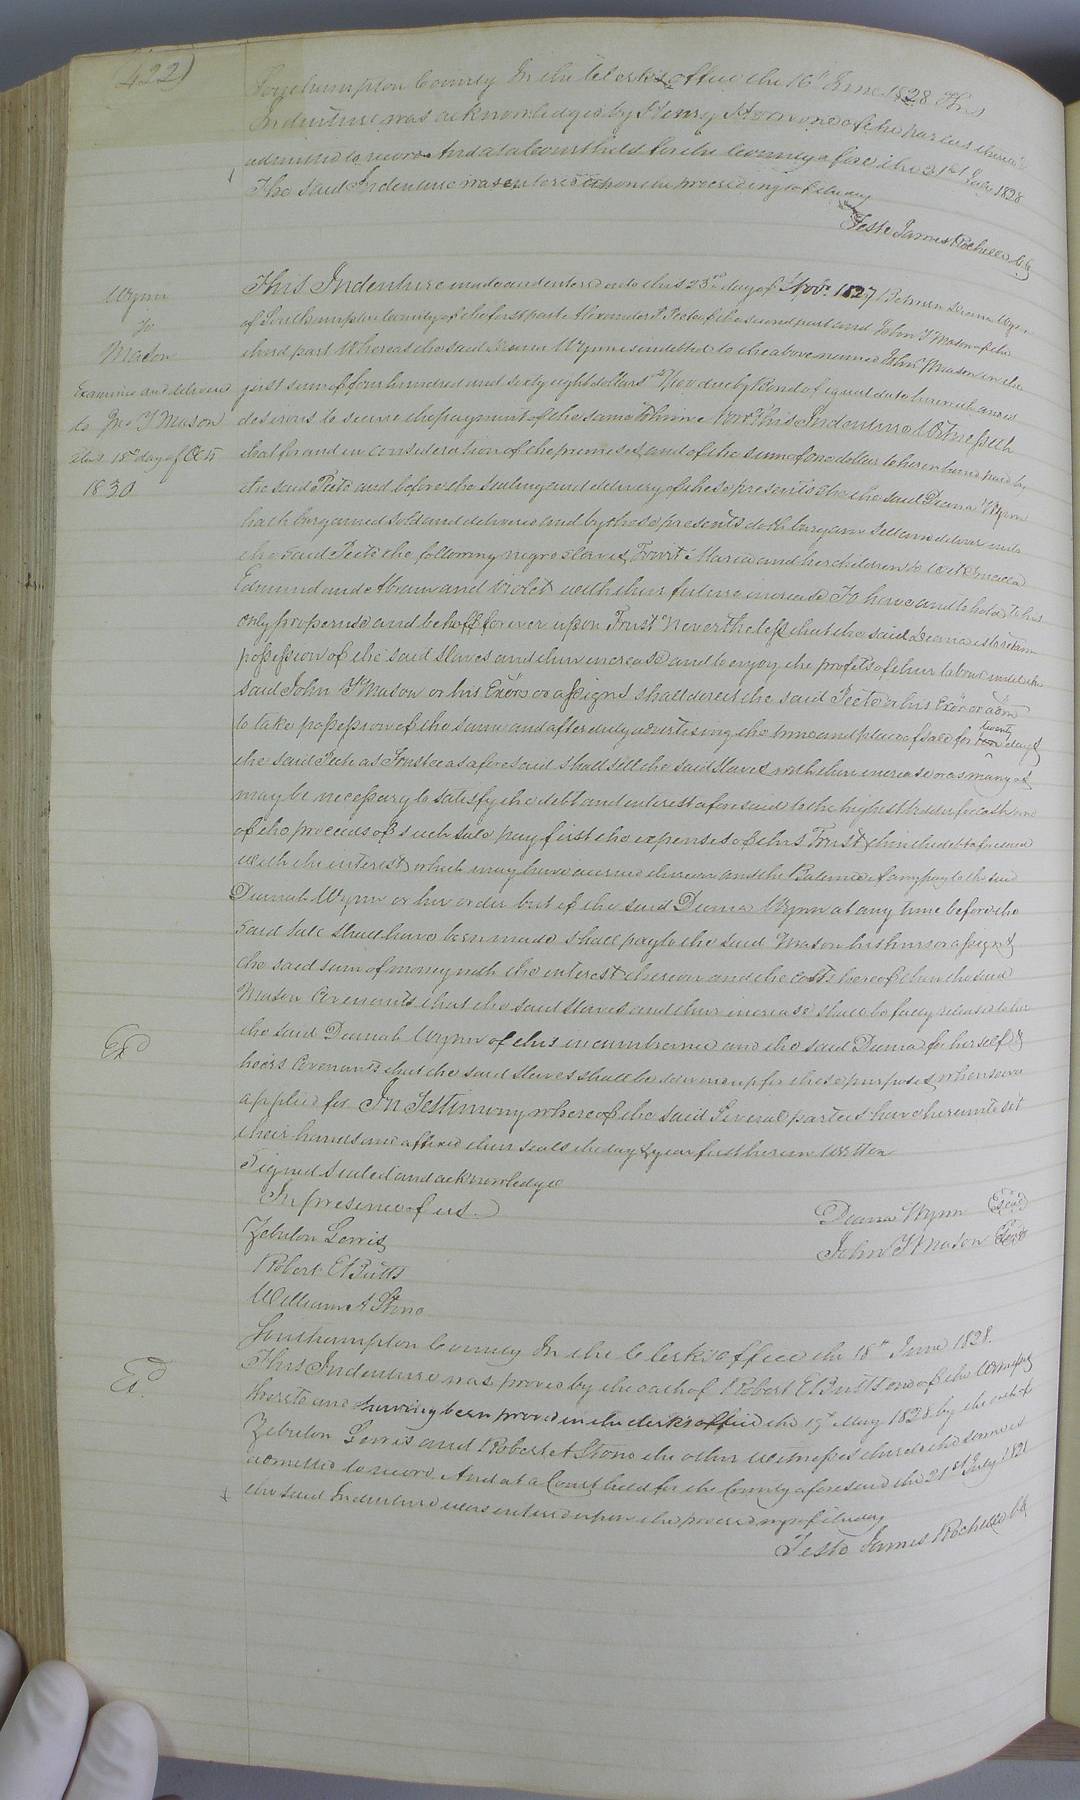 (422)
Southampton County In the Clerk's office the 16th June 1828 This
Indenture was acknowledged by Henry Moore one of the parties thereto
admitted to record And at a Court held for the County aforesaid the 21st July 1828
The said Indenture was entered upon the proceedings of the day
Teste James Rochelle CC
Wynn
to
Mason
Examined and delivered
to Jno Y Mason
this 18th day of Octr
1830
This Indenture made and entered into this 23rd day of Novr. 1827 Between Deana Wynn
of Southampton County of the first part Alexander P Peete of the second part and John Y Mason of the
third part Whereas the said Deana Wynn is indebted to the above named John Y Mason in the
just sum of four hundred and sixty eight dollars /100 due by Bond of equal date herewith and is
desirous to secure the payment of the same to him Now This Indenture Witnesseth
that for and in consideration of the premises and of the sum of one dollar to her in hand paid by
the said Peete and before the sealing and delivery of these presents the said Deana Wynn
hath bargained sold and delivered and by these presents doth bargain sell and deliver unto
the said Peete the following negro slaves, Towit Maria and her children to wit
Edmund and Abram and Violet with their future increase To have and to hold to his
only proper use and behoff forever upon Trust Nevertheless that the said Deana is to retain
possession of the said slaves and their increase and to enjoy the profits of their labour until the
said John Y Mason or his Exors or assigns shall direct the said Peete or his Exor or adm
to take possession of the same and after duly advertising the time and place of sale for twenty days
the said Peete as Trustee as aforesaid shall sell the said slaves with their increase or as many as
may be necessary to satisfy the debt and interest aforesaid to the highest bidder for cash and
of the proceeds of such sale pay first the expenses of this Trust then the debt aforesaid
with the interest which may have accrued thereon and the Balance if any pay to the said
Deanah Wynn or her order but if the said Deana Wynn at any time before the
said sale shall have been made shall pay to the said Mason his heirs or assigns
the said sum of money with the interest thereon and the costs hereof then the said
Mason Covenants that the said slaves and their increase shall be fully released to her
the said Deanah Wynn of this incumbrance and the said Deana for herself &
heirs Covenants that the said slaves shall be delivered up for these purposes whensoever
applied for In Testimony whereof the said Several parties have hereunto set
their hands and affixed their seals the day & year first herein written
Signed sealed and acknowledged
In presence of us
Zebulon Lewis
Robert E Butts
William A Stone
Deana Wynn Seal
John Y Mason Seal
Exd
Southampton County In the Clerk's office the 18th June 1828.
This Indenture was proved by the oath of Robert E Butts one of the Witnesses
thereto and having been proved in the clerks office the 19th May 1828 by the oath of
Zebulon Lewis and Robert A Stone the other witnesses thereto the same is
admitted to record And at a Court held for the County aforesaid the 21st July 1828
the said Indenture was entered upon the proceedings of the day
Teste James Rochelle CC
Ex.d